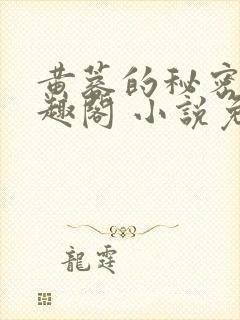 黄蓉的秘密
趣閣 小說免
龍霆